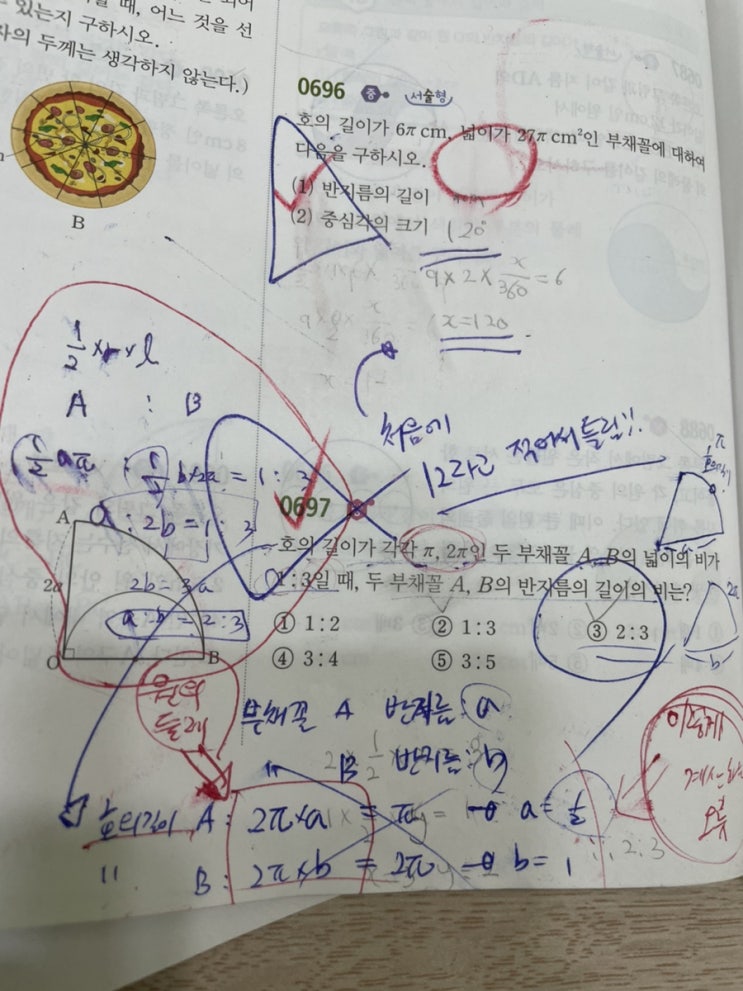 때, 어느 것을 선
있는지 구하시오.
의 두께는 생각하지 않는다.)
B
0696 중 서술형
호의 길이가 6π cm, 넓이가 27π cm²인 부채꼴에 대하여
다음을 구하시오.
(1) 반지름의 길이
(2) 중심각의 크기
120°
9×2×x/360=6
x=120
처음에
12라고 적어서 틀림!!
1/2×r×l
A : B
1/2aπ : 1/2b×2π = 1 : 3
a : 2b = 1 : 3
2b = 3a
a : b = 2 : 3
A
2a
O
B
0697
호의 길이가 각각 π, 2π인 두 부채꼴 A, B의 넓이의 비가
1:3일 때, 두 부채꼴 A, B의 반지름의 길이의 비는?
① 1:2 ② 1:3 ③ 2:3
④ 3:4 ⑤ 3:5
원의
둘레
부채꼴 A 반지름: a
" B 반지름: b
호의길이 A: 2π×a = π → a = 1/2
" B: 2π×b = 2π → b = 1
2:3
이렇게
계산하면
오류